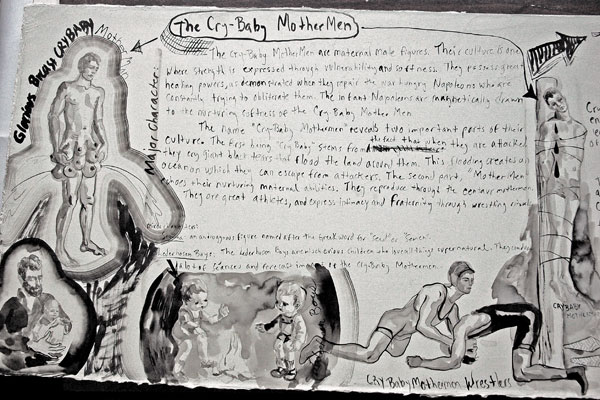 The Cry-Baby MotherMen
Glorious Breast CRYBABY
MotherMan
Major Characters:
The Cry-Baby MotherMen are maternal male figures. Their culture is one
where strength is expressed through vulnerability and softness. They possess great
healing powers, as demonstrated when they repair the war hungry Napoleons who are
constantly trying to obliterate them. The infant Napoleons are magnetically drawn
to the nurturing softness of the Cry-Baby MotherMen
The Name "Cry-Baby Mothermen" reveals two important parts of their
culture. The first being "Cry-Baby" stems from the fact that when they are attacked
they cry giant black tears that flood the land around them. This flooding creates an
ocean on which they can escape from attackers. The second part, "MotherMen"
echoes their nurturing maternal abilities. They reproduce through the centaur motherman.
They are great athletes, and express intimacy and fraternity through wrestling rituals
an androgynous figure named after the Greek word for "seed" or "
Lederhosen Boys: The lederhosen Boys are mischievous children who love all things supernatural. They conduct
a lot of séances and forecast images of the Cry-Baby Mothermen.
CRYBABY
Cry Baby Mothermen Wrestlers